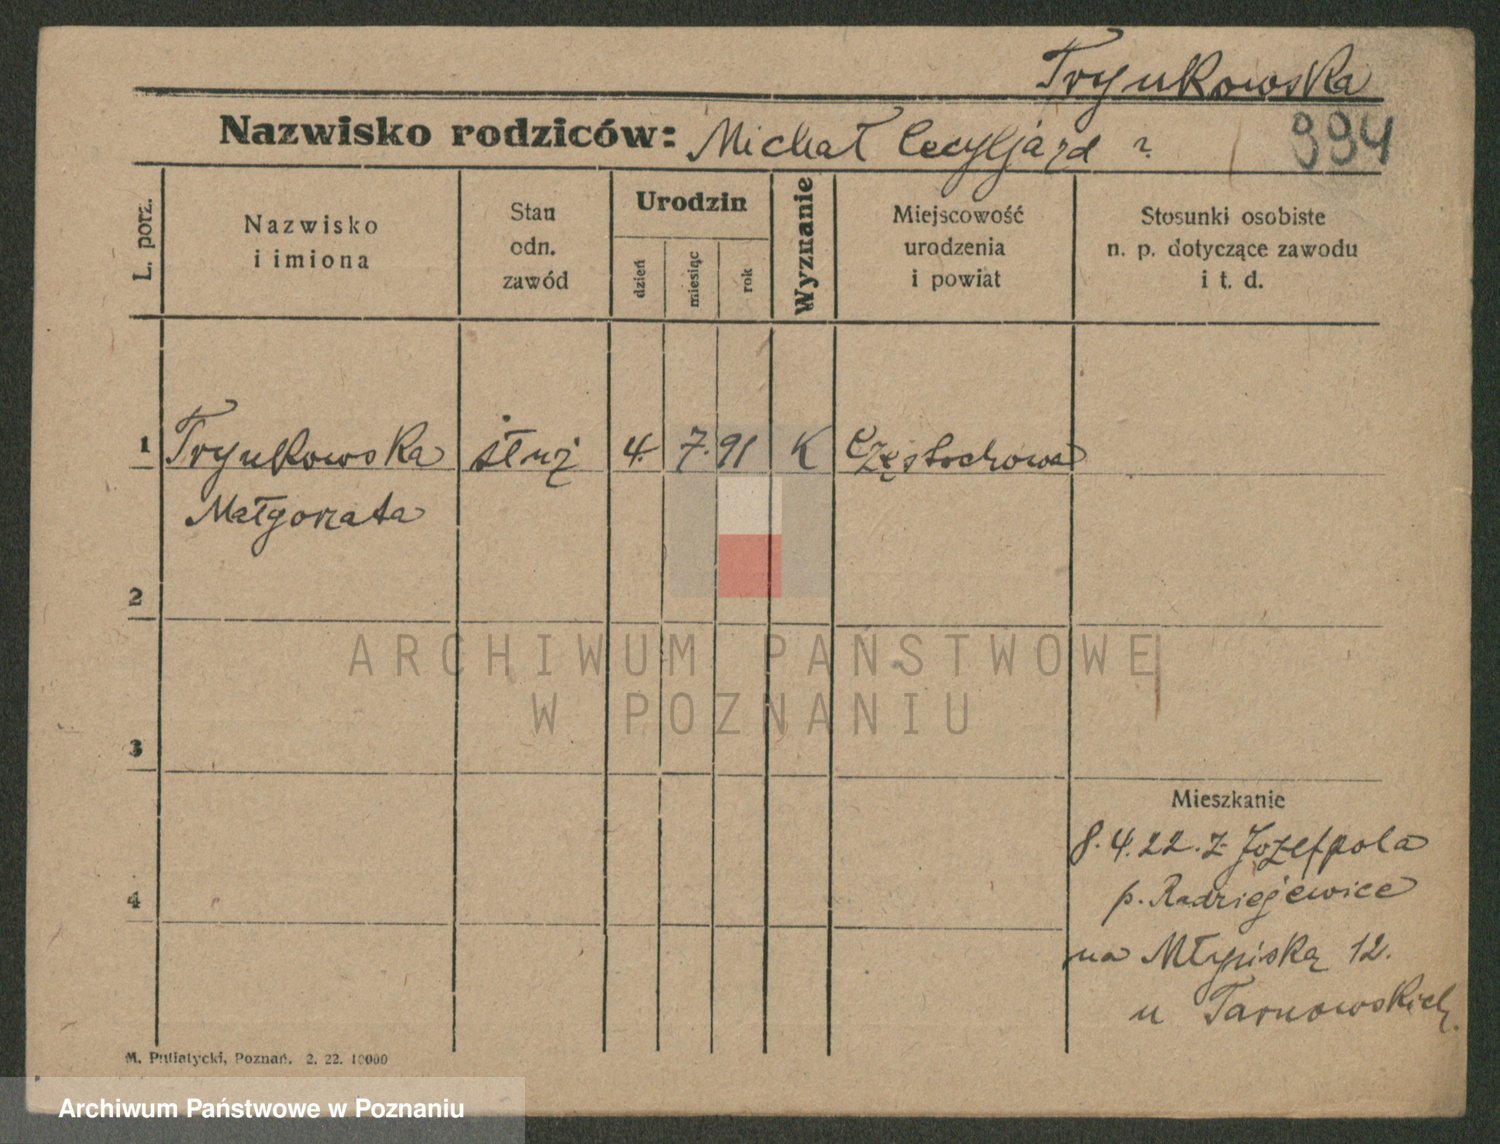 Trynkowska
Nazwisko rodziców: Michał
994
L. porz.
Nazwisko
i imiona
Stan
odn.
zawód
Urodzin
dzień
miesiąc
rok
Wyznanie
Miejscowość
urodzenia
i powiat
Stosunki osobiste
n. p. dotyczące zawodu
i t. d.
1 Trynkowska służ 4. 7. 91 K Częstochowa
Małgorzata
2
ARCHIWUM PAŃSTWOWE
W POZNANIU
3
Mieszkanie
8. 4. 22. z Józefpola
4
p. Radziejewice
na Młyńską 12.
u Tarnowskich.
M. Putiatycki, Poznań. 2. 22. 10000
Archiwum Państwowe w Poznaniu